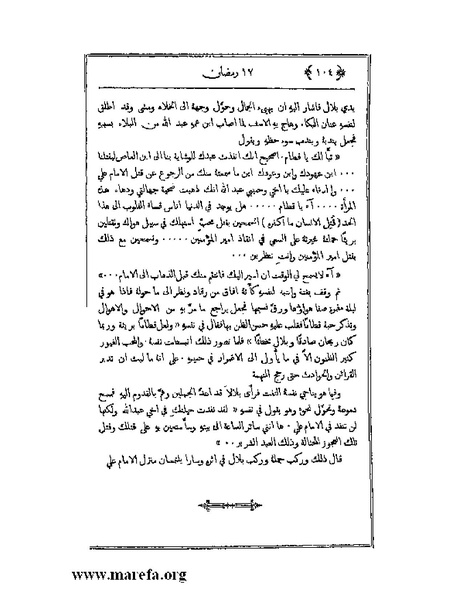 ﴿ ١٠٤ ﴾ ١٧ رمضان
بدي بلال فاشار اليه ان يهيىء الجمال وحوّل وجهه الى الخلاء ومشى وقد اطلق
لنفسه عنان البكاء وهاج به الاسف لما اصاب ابن عمه عبد الله من البلاء بسببه
فجعل يندبه ويندب سوء حظه ويقول
« تبًّا لك يا قطام . اصحيح انك انفذت عبدك للوشاية بنا الى ابن العاص ليقتلنا
اين عهودك واين وعودك اين ما سمعته منك من الرجوع عن قتل الامام علي
٠٠٠ وا اسفاه عليك يا اخي وحبيبي عبد الله انك ذهبت ضحية جهالتي ودهاء هذه
المرأة ٠٠٠٠ آه يا قطام ٠٠٠٠ هل يوجد في الدنيا اناس قساة القلوب الى هذا
الحد ( قُتل الانسان ما اكفره ) اتسعين بقتل محبّ استهلك في سبيل هواك وتقتلين
بريئًا حملك غيرته على السعي في انقاذ امير المؤمنين ٠٠٠٠٠ وتسعين مع ذلك
بقتل امير المؤمنين وانت تنظرين ٠٠
« آه لا يسمح لي الوقت ان اسير اليك فانتقم منك قبل الذهاب الى الامام ٠٠٠ »
ثم وقف بغتة وانتبه لنفسه كأنه افاق من رقاد ونظر الى ما حوله فاذا هو في
ليلة مقمرة صفا هواؤها ورقّ نسيمها فجعل يراجع ما مرّ به من الاحوال والاهوال
وتذكر حبه قطاما فغلب عليه حسن الظن بها فقال في نفسه « ولعل قطامًا بريئة وربما
كان ريحان صادقًا وبلال مخطئًا » فلما تصور ذلك انبسطت نفسه والمحب الغيور
كثير الظنون الاّ في ما يأول الى الاضرار في حبيبه . على انه ما لبث ان تدبر
القرائن والحوادث حتى رجح التهمة
وفيما هو يناجي نفسه التفت فرأى بلالاً قد اعدّ الجملين وهمّ بالقدوم اليه فمسح
دموعه وتحوّل نحوه وهو يقول في نفسه « لقد نفذت حيلتك في اخي عبدالله ولكنها
لن تنفذ في الامام علي . ها انني سائر الساعة الى بيته وسأستعين به على قتلك وقتل
تلك العجوز المحتالة وذلك العبد الشرير ٠٠ »
قال ذلك وركب جمله وركب بلال في اثره وسارا يلتمسان منزل الامام علي
www.marefa.org